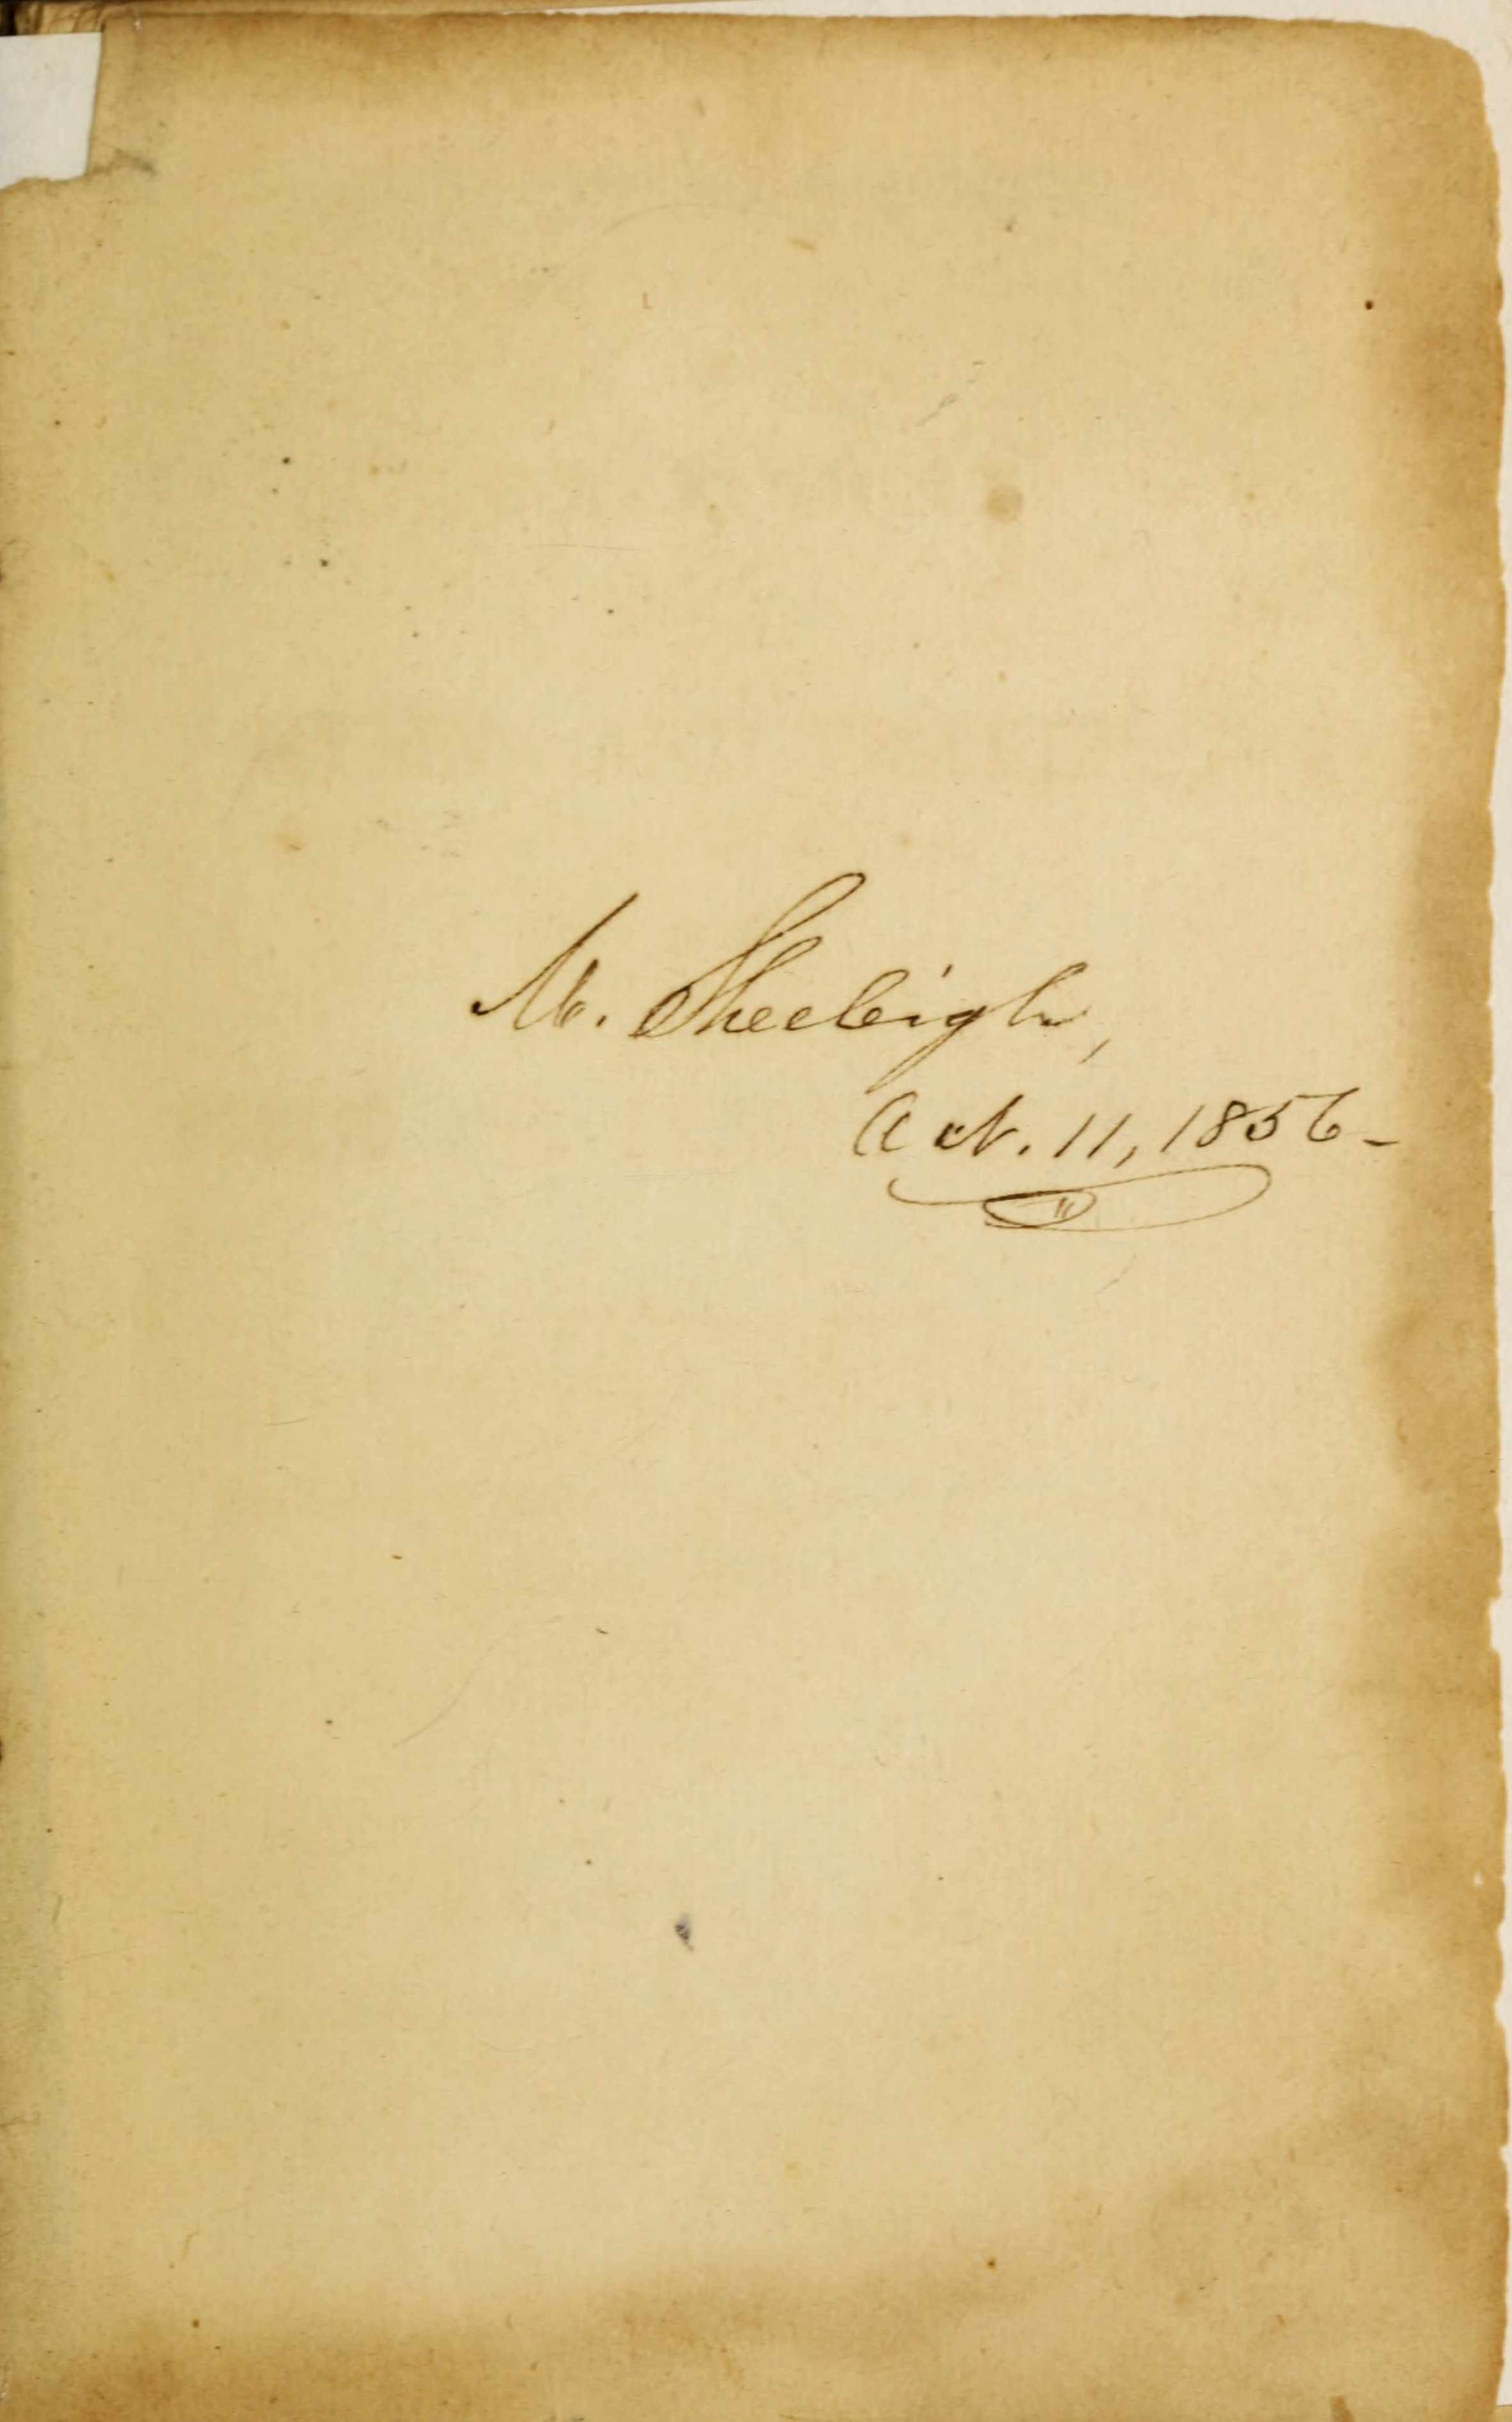 M. Sheeleigh,
Oct. 11, 1856-